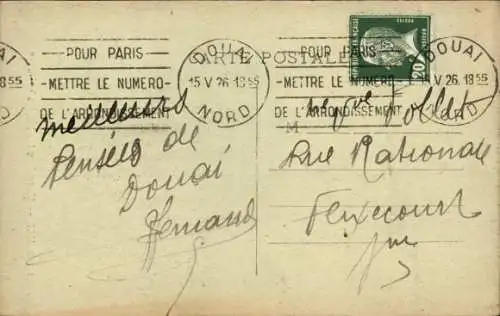 POUR PARIS
METTRE LE NUMERO
DE L'ARRONDISSEMENT
DOUAI
15 V 26 18 55
NORD
CARTE POSTALE
POUR PARIS
METTRE LE NUMERO
DE L'ARRONDISSEMENT
DOUAI
V 26 18 55
meilleures
Pensées de
Douai
Fernand
M
Rue Nationale
Flixecourt